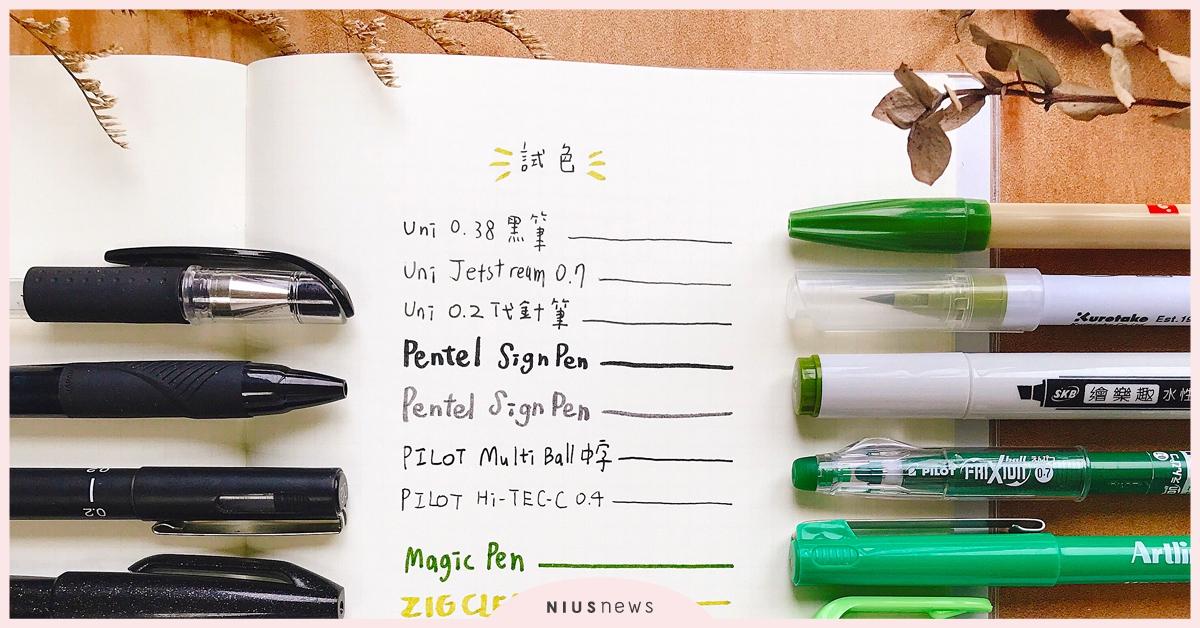 試色
uni 0.38 黑筆
Uni Jetstream 0.7
Uni 0.2 代針筆
Pentel Sign Pen
Pentel Sign Pen
PILOT Multi Ball 中字
PILOT Hi-TEC-C 0.4
Magic Pen
ZIG CLE
0.2
0.2
Kuretake Est.19
SKB 繪樂趣 水性
PILOT FRIXION ball 0.7
Artli
NIUSnews